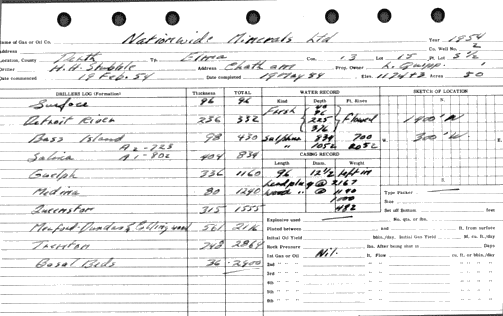 Name of Gas or Oil Co. Nationwide Minerals Ltd Year 1954
Address Co. Well No. 2
Location, County Perth Tp. Elma Con. 13 Lot 15 Pt. Lot S 1/2
Driller H. H. Stubble Address Chatham Prop. Owner
Date commenced 19 Feb. 54 Date completed 19 May 54 Elev. Acres 50
DRILLERS LOG (Formation) Thickness TOTAL WATER RECORD SKETCH OF LOCATION
Kind Depth Ft. Rises
Surface 96 96 N.
Fresh 225 Flowed 1400' N
Detroit River 236 332 316
Bass Island 98 430 Sulphur 834 700 W. 300' W. E.
A2-723 " 1052 2052
Salina A1-802 404 834 CASING RECORD
Length Diam. Weight S.
Guelph 336 1160 96 12 1/2 Left in
lead plug @ 2167 Type Packer
Medina 80 1240 wood " @ 1190 Size
1000 Set off Bottom feet
Queenston 315 1555 482
Explosive used No. qts. or lbs.
Meaford-Dundas & Collingwood 561 2116 Plotted between and ft. from surface
Initial Oil Yield Min./day. Initial Gas Yield M. cu. ft./day
Trenton 748 2864 Rock Pressure lbs. After being shut in Days
1st Gas or Oil Nil. ft. Flow cc. ft. or bbls./day
Basal Beds 36 2900 2nd " " " " " " "
3rd " " " " " " "
4th " " " " " " "
5th " " " " " " "
6th " " " " " " "